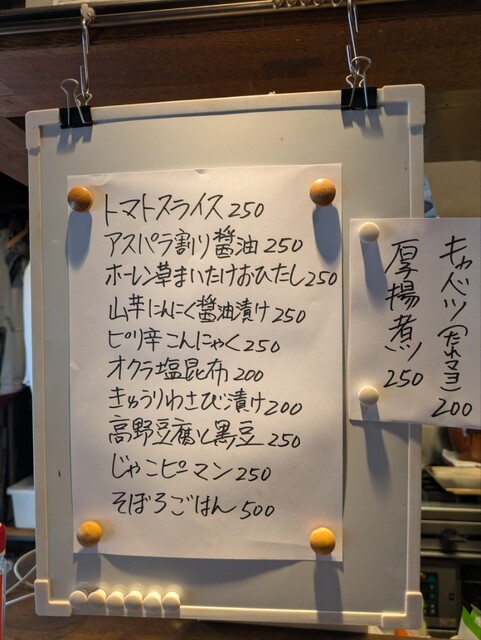 トマトスライス 250
アスパラ割り醤油 250
ホーレン草まいたけおひたし 250
山芋にんにく醤油漬け 250
ピリ辛こんにゃく 250
オクラ塩昆布 200
きゅうりわさび漬け 200
高野豆腐と黒豆 250
じゃこピーマン 250
そぼろごはん 500
キャベツ(たれマヨ) 200
厚揚煮 250